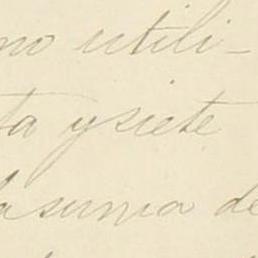 no utili-
ta y siete
la suma de